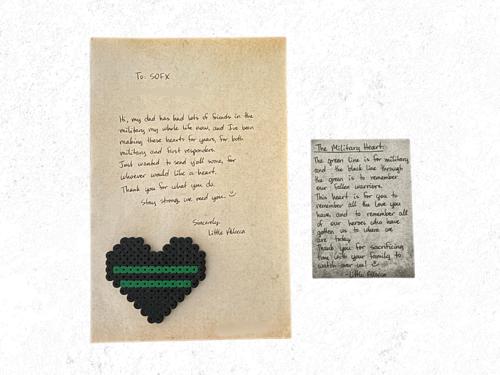 To: SOFX
Hi, my dad has had lots of friends in the
military my whole life now, and I've been
making these hearts for years, for both
military and first responders.
Just wanted to send y'all some, for
whoever would like a heart.
Thank you for what you do.
Stay strong, we need you.
Sincerely,
Little
The Military Heart:
The green line is for military
and the black line through
the green is to remember
our fallen warriors.
This heart is for you to
remember all the love you
have, and to remember all
of our heroes who have
gotten us to where we
are today.
Thank you for sacrificing
time with your family to
watch over us!
-Little